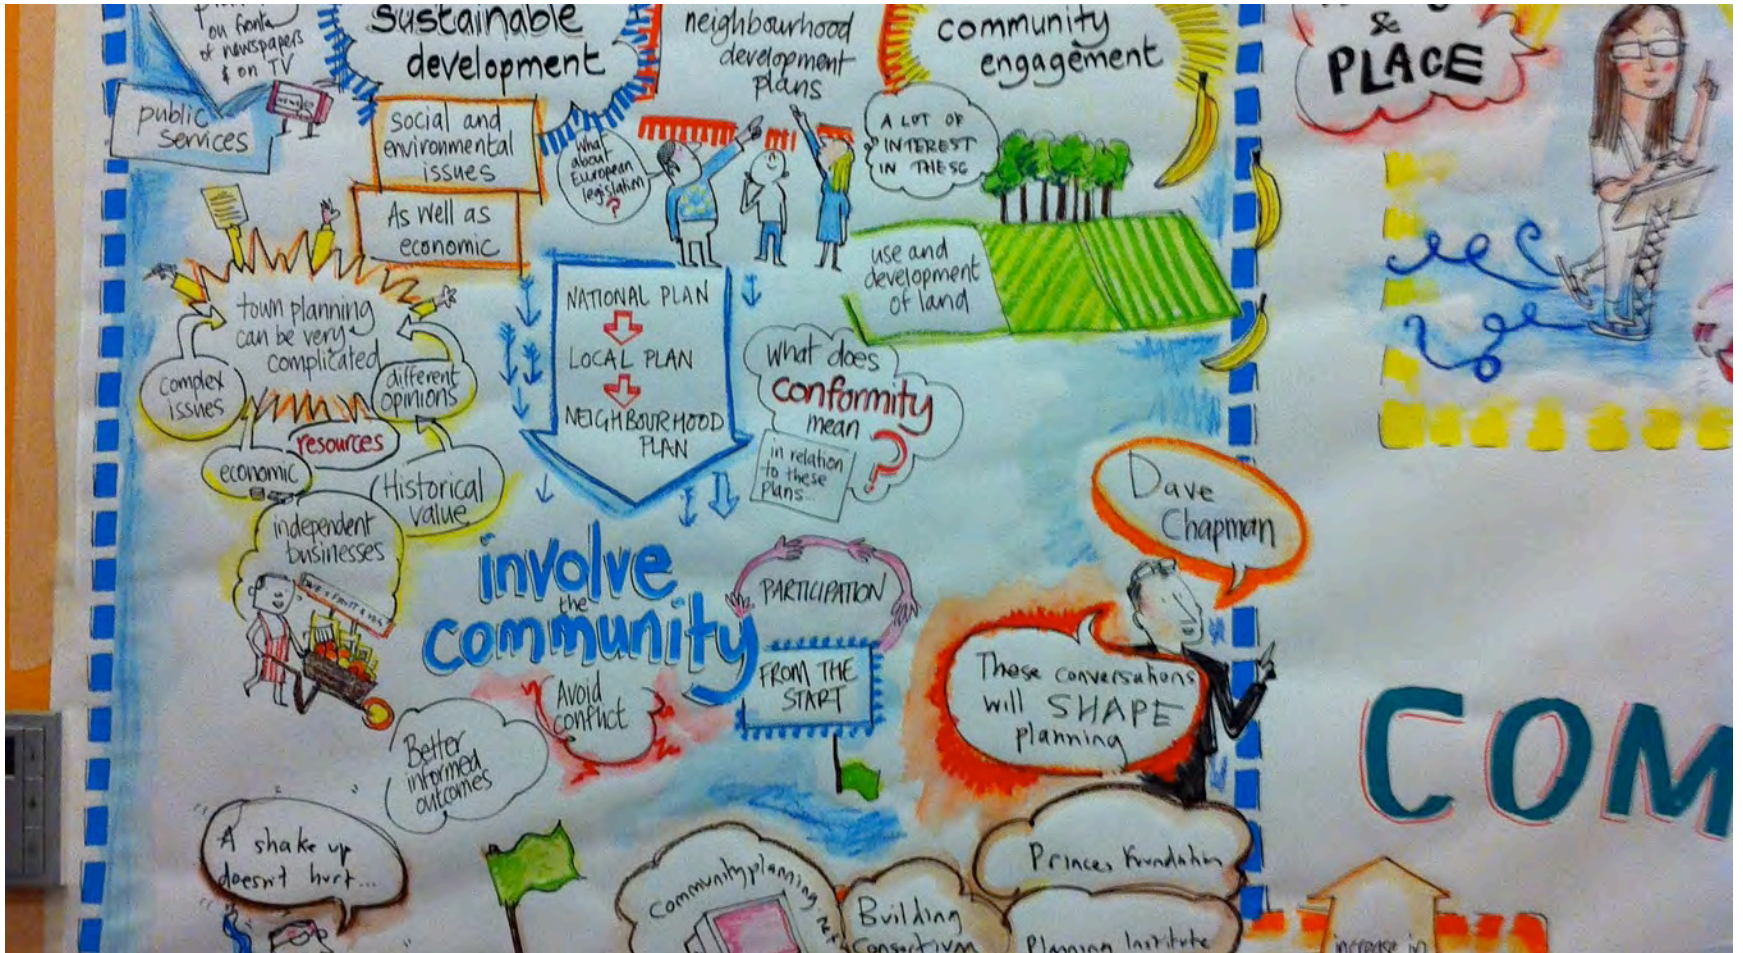 on front
of newspapers
& on TV
public
services
Sustainable
development
social and
environmental
issues
As well as
economic
neighbourhood
development
plans
What
about
European
legislation
?
community
engagement
A LOT OF
INTEREST
IN THESE
use and
development
of land
&
PLACE
town planning
can be very
complicated
complex
issues
different
opinions
resources
economic
Historical
value
independent
businesses
NATIONAL PLAN
LOCAL PLAN
NEIGHBOURHOOD
PLAN
What does
conformity
mean
?
in relation
to these
plans...
involve
the
community
PARTICIPATION
FROM THE
START
Avoid
conflict
Better
informed
outcomes
Dave
Chapman
These conversations
will SHAPE
planning
A shake up
doesn't hurt...
Communityplanning.net
Building
Consortium
Princes Foundation
Planning Institute
COM
increase in